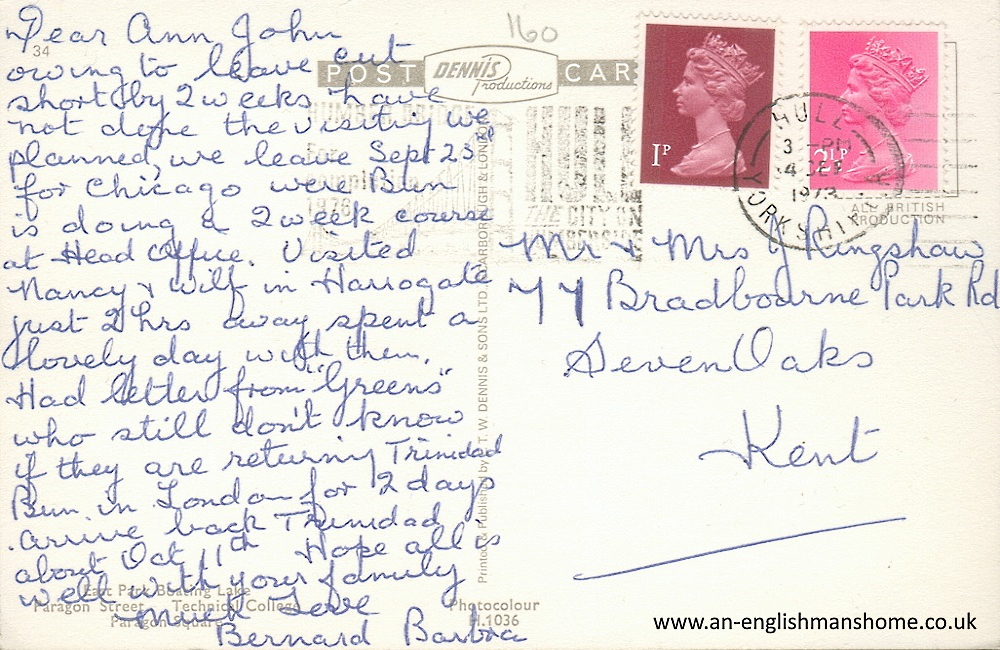 Dear Ann John
34
owing to leave cut
short by 2 weeks have
not done the visiting we
planned, we leave Sept 23rd
for Chicago were Bun
is doing a 2 week course
at Head Office. Visited
Nancy & Wilf in Harrogate
just 2 hrs away spent a
lovely day with them.
Had letter from "Greens"
who still don't know
if they are returning Trinidad
Bun in London for 2 days
arrive back Trinidad
about Oct 11th Hope all is
well with your family
Much Love
Bernard Barbra
160
POST CARD
DENNIS
Productions
1P
2½P
HULL
YORKSHIRE
1973
ALL BRITISH
PRODUCTION
Mr & Mrs J Ringshaw
77 Bradbourne Park Rd
SevenOaks
Kent
Printed & Published by E. T. W. DENNIS & SONS LTD., SCARBOROUGH & LONDON
East Park Boating Lake
Paragon Street Technical College
Paragon Square
Photocolour
H.1036
www.an-englishmanshome.co.uk